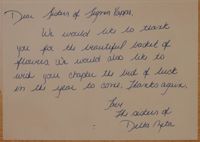 Dear Sisters of Sigma Kappa,
We would like to thank
you for the beautiful basket of
flowers. We would also like to
wish you chapter the best of luck
in the year to come. Thanks again.
Love
The sisters of
Delta Zeta